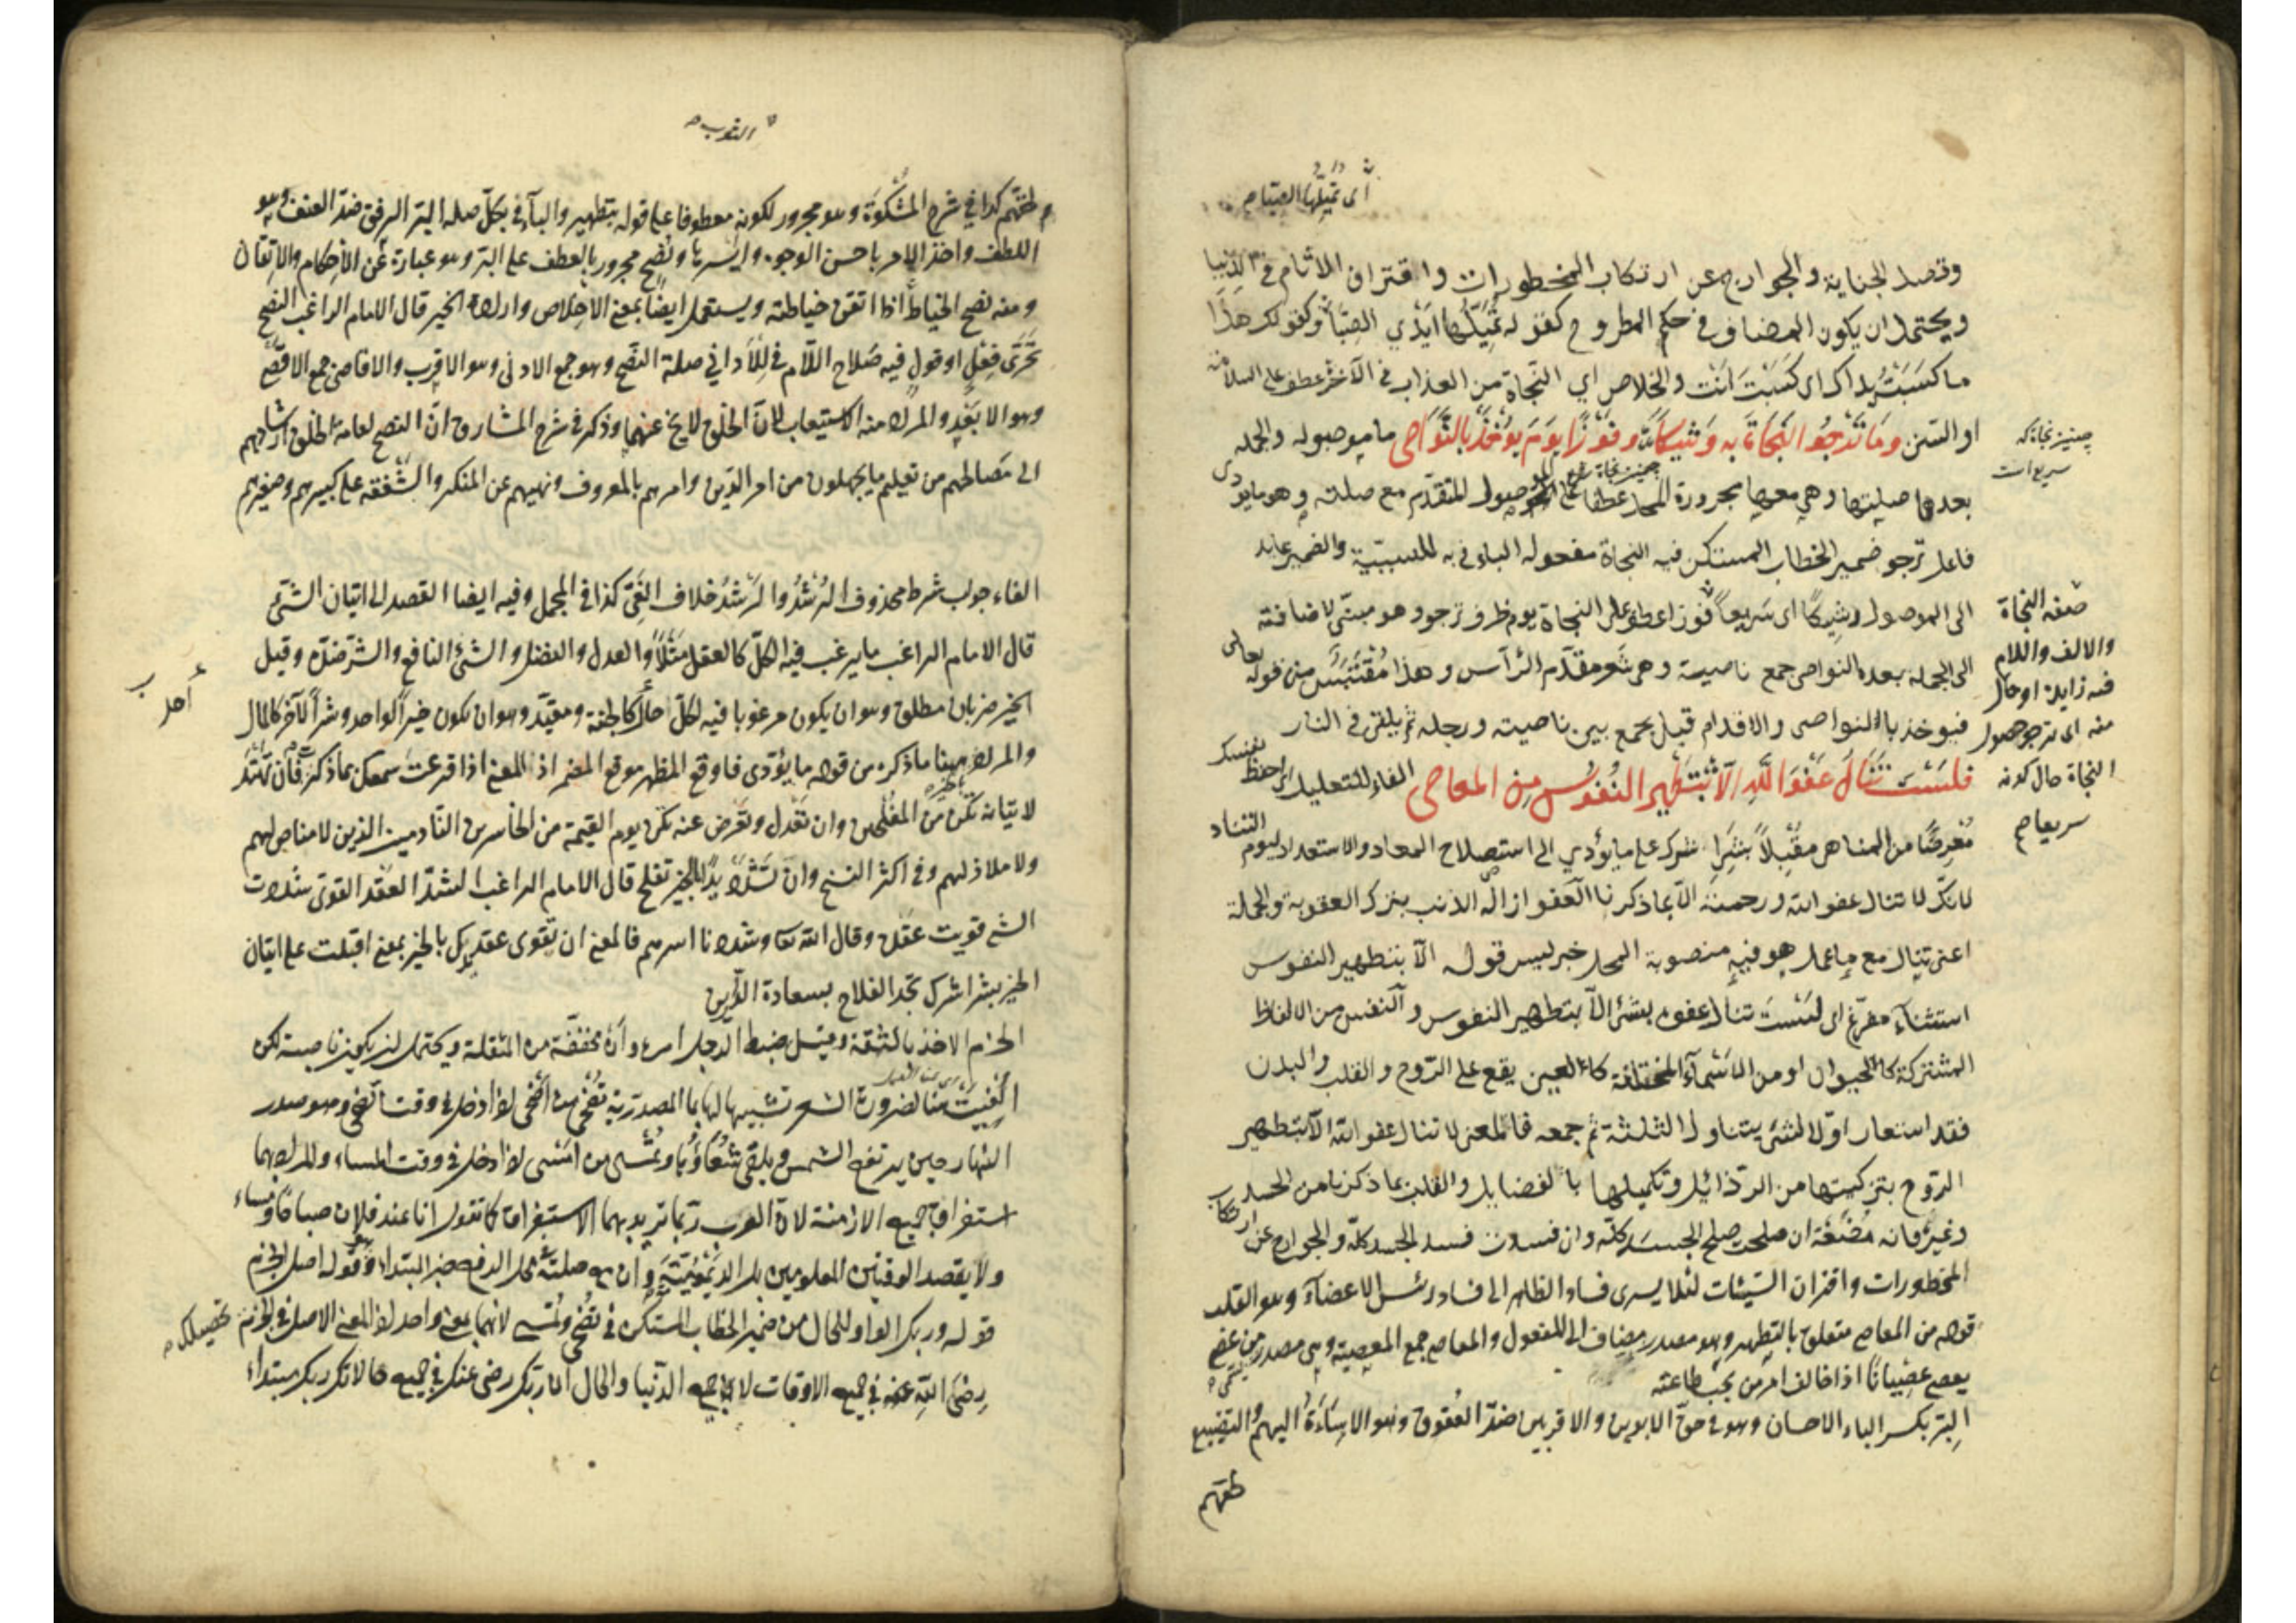 أى تميلها الصبا م
وتصد الجناية والجوارح عن ارتكاب المحظورات واقتراف الاثام فى الدنيا
ويحتمل ان يكون المضاف فى حكم المطروح كقوله تُمَيِّلُها ايدي الصَّبا وكقولك هذا
ما كسَبَتْ يداك اى كَسَبْتَ انت والخلاص اي النجاة من العذاب فى الآخرة عطف على السلامة
او السنن وَمَا تَرْجُو النَجَاةَ بِه وَشِيكًا وفَوْزًا يَومَ يُؤخَذُ بالنَّوَاصِى ما موصوله والجمله
چنيز نجاة كه
سريع است
بعدها صلتها وهي معها مجرورة المحل عطفا على الموصول المتقدم مع صلته وهو ما يؤدى
فاعل ترجو ضمير الخطاب المستكن فيه النجاة مفعوله الباء فى به للسببيّة والضمير عايد
الى الموصول وشيكًا اى سَريعاً فوزا عطف على النجاة يوم ظرف ترجو وهو مبنيّ لاضافته
الى الجمله بعده النواصى جمع ناصية وهى شَعر مقدّم الرأس وهذا مُقْتَبَس من قوله تعالى
فيوخذ بالنواصى والاقدام قيل يجمع بين ناصيته ورجله ثم يلقى فى النار
صفه النجاة
والالف واللام
فيه زايدة او حال
منه اى ترجو حصول
النجاة حال كونه
سريعا م
فلسْتَ تَنَالُ عَفْوَ اللّهِ الّا بتَطهِيرِ النُفُوسِ مِنَ المعاصى الفاء للتعليل اى احفظ نفسك
مُعْرِضًا من المناهى مقْبلاً بشَرا شرك على ما يؤدي الى استصلاح المعاد والاستعداد ليوم التناد
لانك لا تنال عفو الله ورحمته الّا بما ذكرنا العفو ازالة الذنب بترك العقوبة والجملة
اعنى تنال مع ما عمل هو فيه منصوبة المحل خبر ليس قوله الّا بتطهير النفوس
استثناء مفرّغ اى لَسْتَ تنال عفوه بشئ الّا بتطهير النفوس والنفس من الالفاظ
المشتركة كالحيوان او من الاسْمآء المختلفة كالعين يقع على الرّوح والقلب والبدن
فقد استعار اوّلا لمشئ يتناول الثلثة ثم جمعه فالمعنى لا تنال عفو الله الّا بتطهير
الرّوح بتزكيتها من الرّذائل وتكميلها بالفضايل والقلب بما ذكرنا من الحسد
وغيره فانه مُضْغَة ان صلحت صلح الجسَد كلّه وان فسدت فسد الجسد كلّه والجوارح عن ارتكاب
المحظورات واقتران السّيئات لئلا يسرى فساد الظاهر الى فساد رئيس الاعضآء وهو القلب
قوله من المعاصى متعلق بالتطهير وهو مصدر مضاف الى المفعول والمعاصى جمع المعصية وهى مصدر من عصى
يعصى عصْيانًا اذا خالف امر من يجب طاعته
البِرّ بكسر الباء الاحسان وهو فى حقّ الابوين والاقربين ضدّ العُقوق وهو الاساءة اليهم والتضييع
لحقّهم
لحقّهم كذا في شرح المشْكوة وهو مجرور لكونه معطوفا على قوله بتطهير والبآء فى بكلّ صله البِرّ الرفق ضدّ العنف وهو
اللطف واخذ الامر باحسن الوجوه وايسرها ونُصْح مجرور بالعطف على البرّ وهو عبارة عَن الاحكام والاتقان
ومنه نصح الخياط اذا اتقن خياطته ويستعمل ايضًا بمعنى الاخلاص وارادة الخير قال الامام الراغب النصح
تحَرِّى فِعْلٍ او قولٍ فيه صَلاح اللّام فى للأدانى صلة النصح وهو جمع الادنى وهو الاقرب والاقاصى جمع الاقصى
وهو الابعَد والمراد منه الاستيعاب لانّ الخلق لا يخ عنهما وذكر فى شرح المشارق انّ النصح لعامة الخلق ارشادهم
الى مَصالحهم من تعليم ما يجهلون من امر الدّين وامرهم بالمعروف ونهيهم عن المنكر والشّفقة على كبيرهم وصغيرهم
الفاء جواب شرط محذوف الرُشْدُ والرَشَدُ خلاف الغَىّ كذا فى المجمل وفيه ايضا القصد الى اتيان الشئ
قال الامام الراغب ما يرغب فيه الكلّ كالعقل مَثَلًا والعدل والفضل والشئ النافع والشرّ ضدّه وقيل
الخير ضربان مطلق وهو ان يكون مرغوبا فيه لكلّ احد كالجنة ومقيّد وهو ان يكون خيراً لواحد وشراً لآخر كالمال
والمراد ههنا ما ذكره من قوله ما يؤدى فاوقع المظهر موقع المضمر اذ المعنى اذا قرعت سمعك بما ذكرت فان تَهْتَدِ
لاتيانه تكن من المفلحين وان تَعْدِل وتعرض عنه تكن يوم القيمة من الخاسرين النّادمين الذين لا مناص لهم
ولا ملاذ لهم وفى اكثر النسخ وان تَشْدُدْ يداً بالخير تفلح قال الامام الراغب الشدّ العقد القوى شددت
الشئ قويت عقده وقال الله تعا وشددنا اسرهم فالمعنى ان تقوى عقد يدك بالخير بمعنى اقبلت على اتيان
الخير بشرا شرك تجد الفلاح بسعادة الدّارين
الحزم الاخذ بالثقة وقيل ضبط الرجل امره وانْ مخففة من المثقلة ويحتمل ان يكون ناصبة لكن
النهار حين يرتفع الشمس ويلقى شُعَاعُها وتُمْسى من امْسَى اذا دخل فى وقت المساء والمراد بهما
استغراق جميع الازمنة لان العرب ربّما تريد بهما الاستغراق كما تقول انا عند فلان صباحًا ومساء
ولا يقصد الوقتين المعلومين بل الدَيْمُومِيَّة وان مع صلته محل الرفع خبر المبتدأ وهو قوله اصل الحزم
قوله وربك الواو للحال من ضمير الخطاب المستكن فى تُضْحى وتُمْسى لانهما بمعنى واحد اذ المعنى الاصل فى الحزم تحصيلك
رِضَى اللّهِ عنه فى جميع الاوقات والحال ان ربّك رضى عنك فى جميع حالاتك ربك مبتدأ